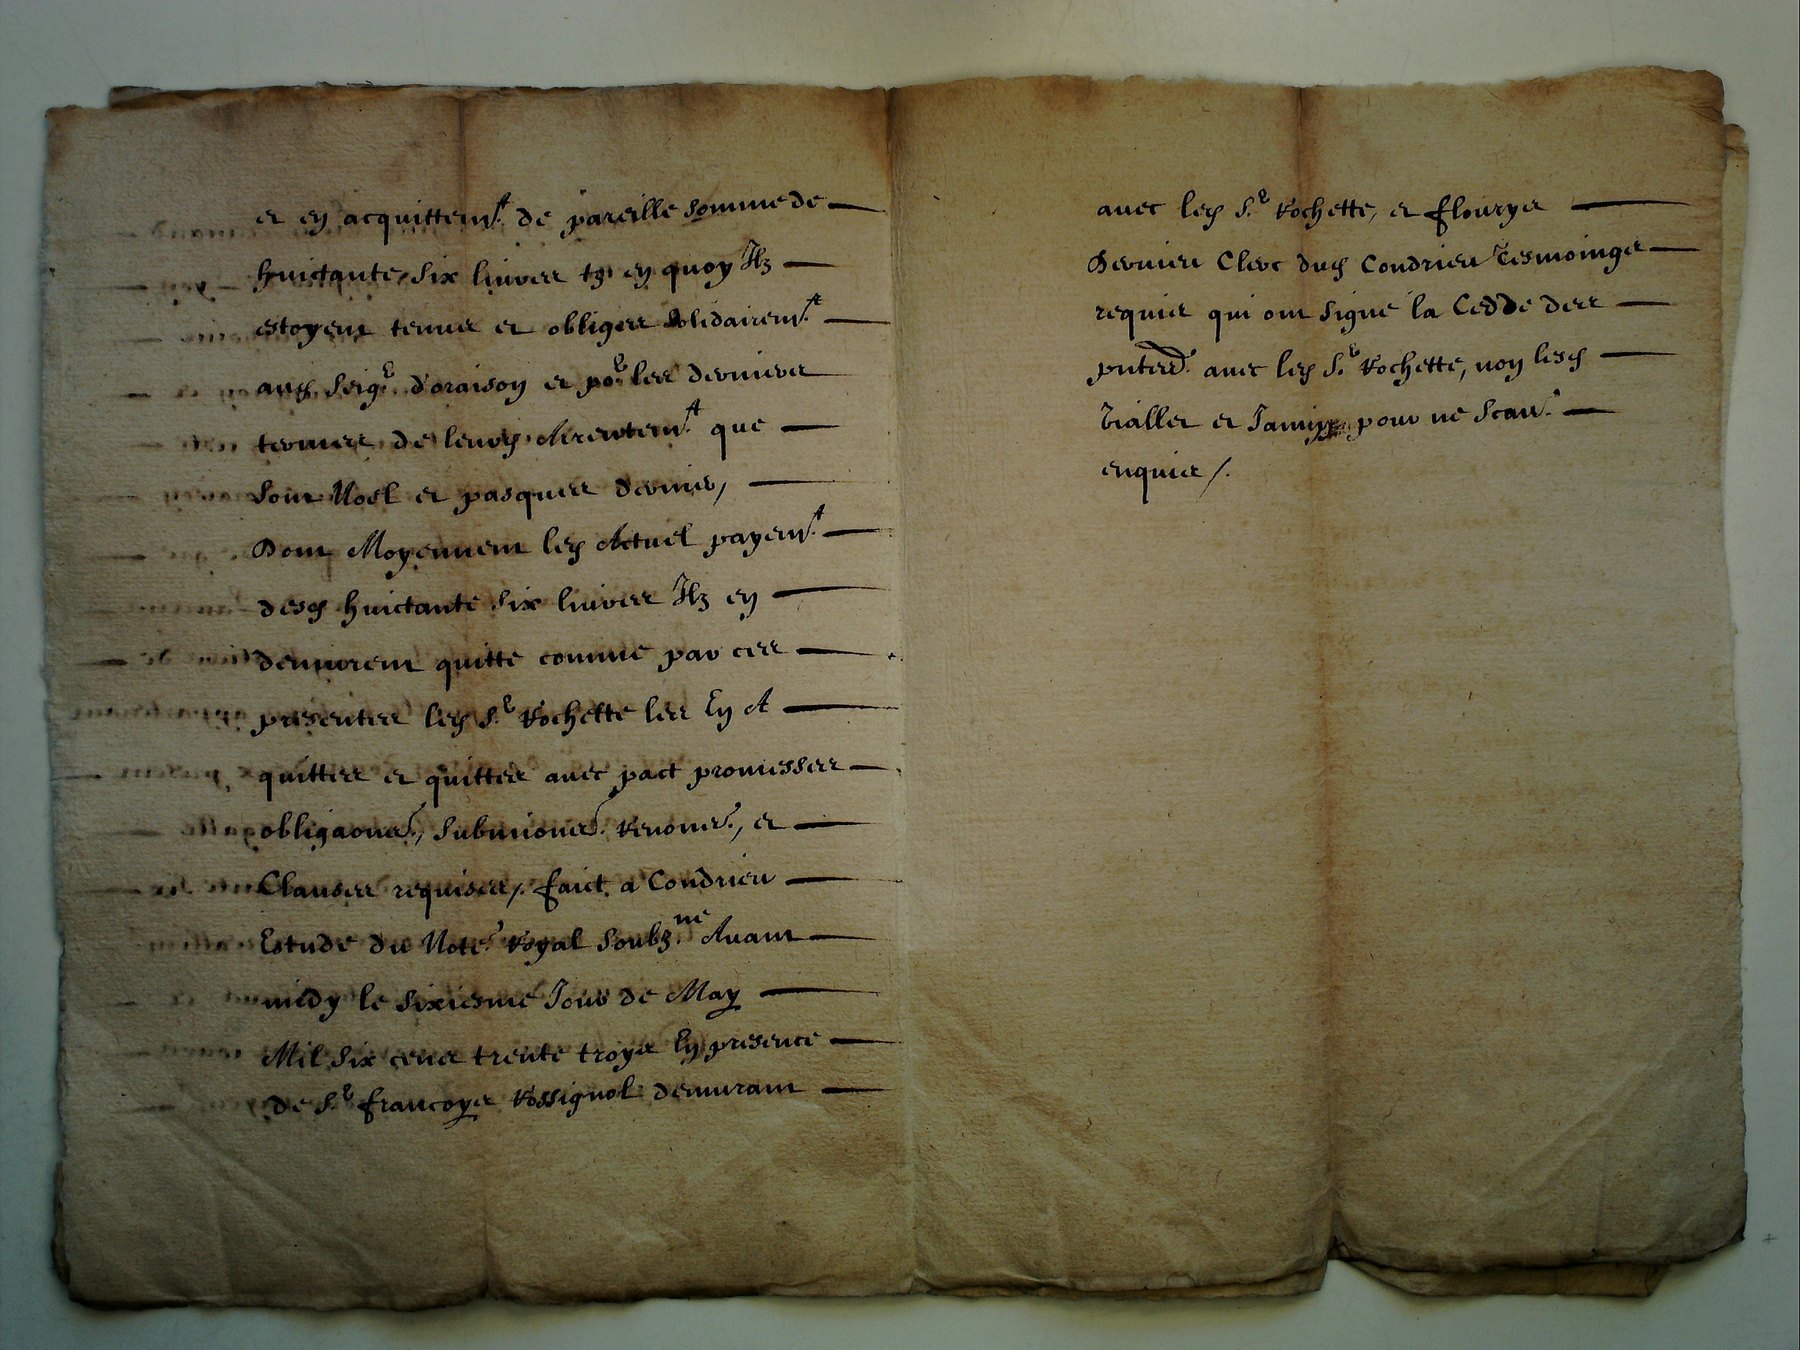 et en acquittemt de pareille somme de
huictante six livres tz en quoy Ilz
estoyent tenus et obliges solidairemt
audt Seigr d'oraison et por les derniers
termes de leurd Arrentemt que
sont Noel et pasques dernier,
Dont Moyennent led Actuel payemt
desd huictante six livres Ilz en
demurent quitte comme par ces
presentes led Sr Rochette les En A
quittes et quittes avec pact promesses
obligaones, submiones Renones, et
Clauses requises, faict a Condrieu
Estude du Notre Royal soubzne Avant
midy le sixiesme Jour de May
Mil six cens trente troys En presence
de Sr francoys Rossignol demurant
avec led Sr Rochette, et flourys
Dernieu Clerc dud Condrieu Tesmoings
requis qui ont signe la Cedde des
pntes avec led Sr Rochette, non lesd
Vialles et pour ne scav
enquis